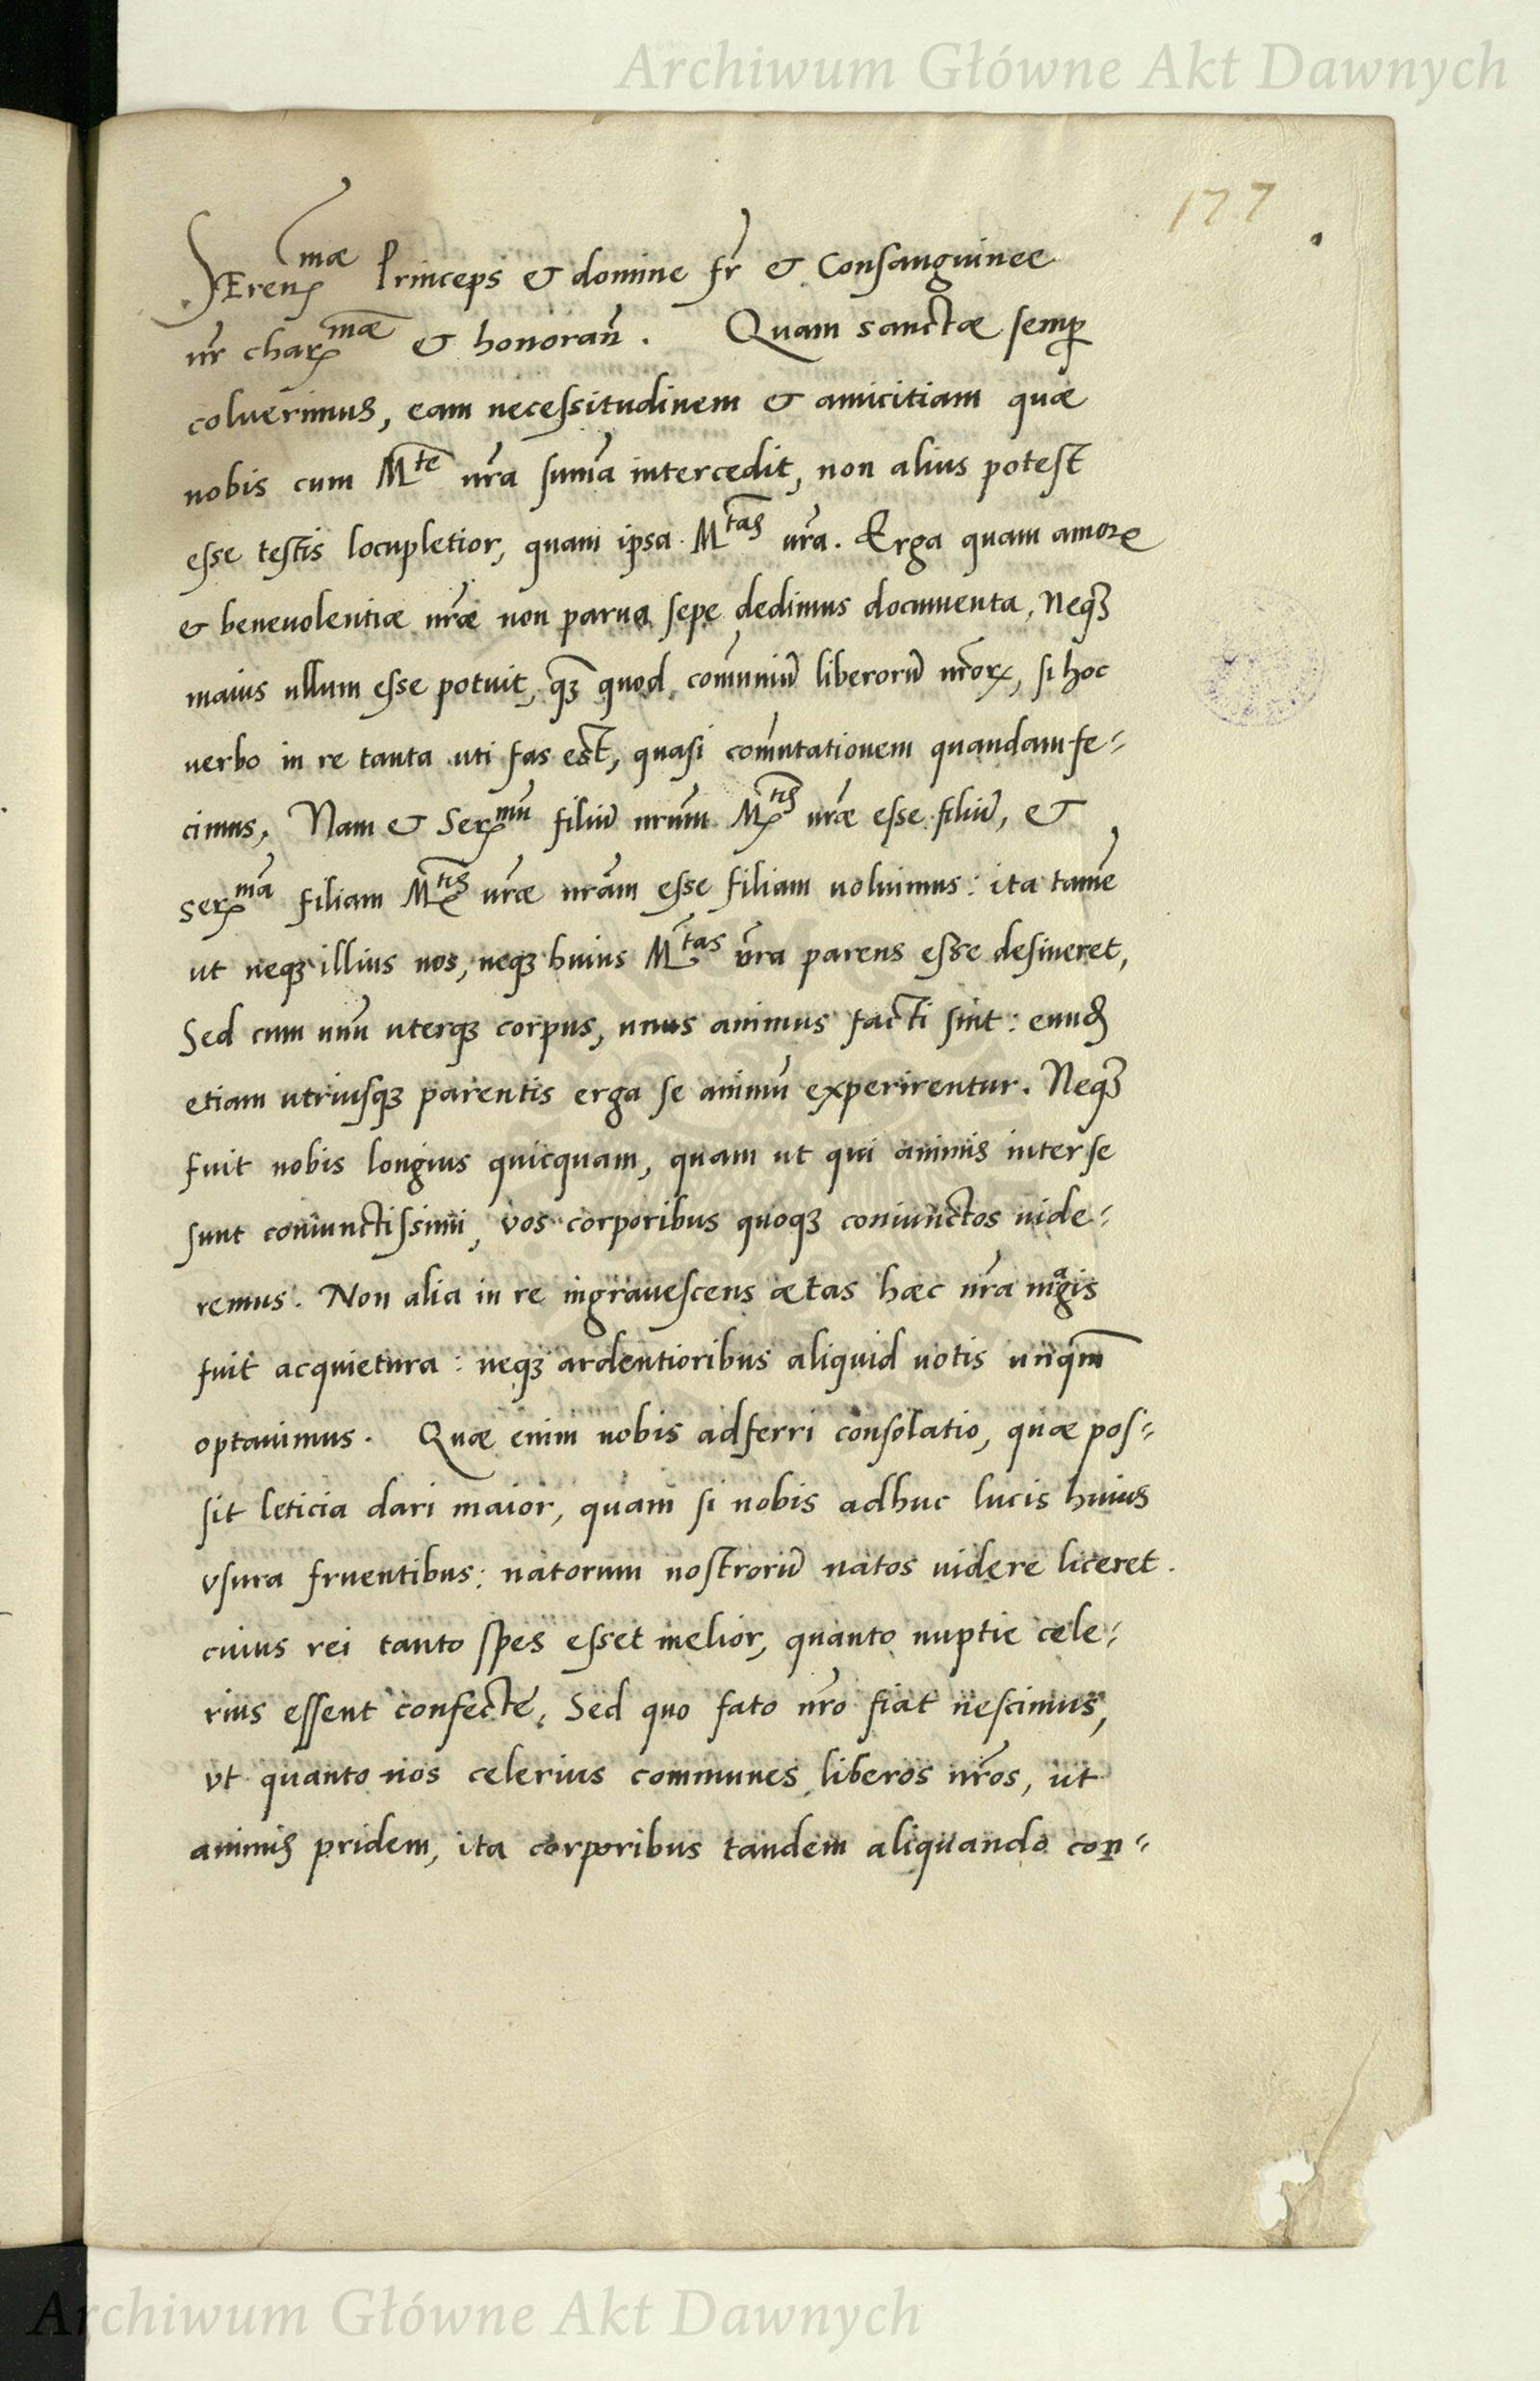 Archiwum Główne Akt Dawnych
177
SErenmæ Princeps & domine fr & Consanguinee
nr charmæ & honoran. Quam sanctæ semp
coluerimus, eam necessitudinem & amicitiam quæ
nobis cum Mte vra suma intercedit, non alius potest
esse testis locupletior, quam ipsa Mtas vra. Erga quam amore
& beneuolentiæ nræ non parua sepe dedimus documenta, Neqꝫ
maius ullum esse potuit, qꝫ quod comuniu liberoru nrorꝝ, si hoc
uerbo in re tanta uti fas est, quasi comutationem quandam fe-
cimus, Nam & Sermu filiu nrum Mtis vræ esse filiu, &
serma filiam Mtis vræ nram esse filiam uoluimus: ita tame
ut neqꝫ illius nos, neqꝫ huius Mtas vra parens esse desineret,
Sed cum unu uterqꝫ corpus, unus animus facti sint: eund
etiam utriusqꝫ parentis erga se animu experirentur. Neqꝫ
fuit nobis longius quicquam, quam ut qui animis inter se
sunt coniunctissimi, vos corporibus quoqꝫ coniunctos uide-
remus. Non alia in re ingrauescens ætas hæc nra magis
fuit acquietura: neqꝫ ardentioribus aliquid uotis unqm
optauimus. Quæ enim nobis adferri consolatio, quæ pos-
sit leticia dari maior, quam si nobis adhuc lucis huius
vsura fruentibus: natorum nostroru natos uidere liceret.
cuius rei tanto spes esset melior, quanto nuptie cele-
rius essent confecte, Sed quo fato nro fiat nescimus,
vt quanto nos celerius communes liberos nros, ut
animis pridem, ita corporibus tandem aliquando con-
Archiwum Główne Akt Dawnych